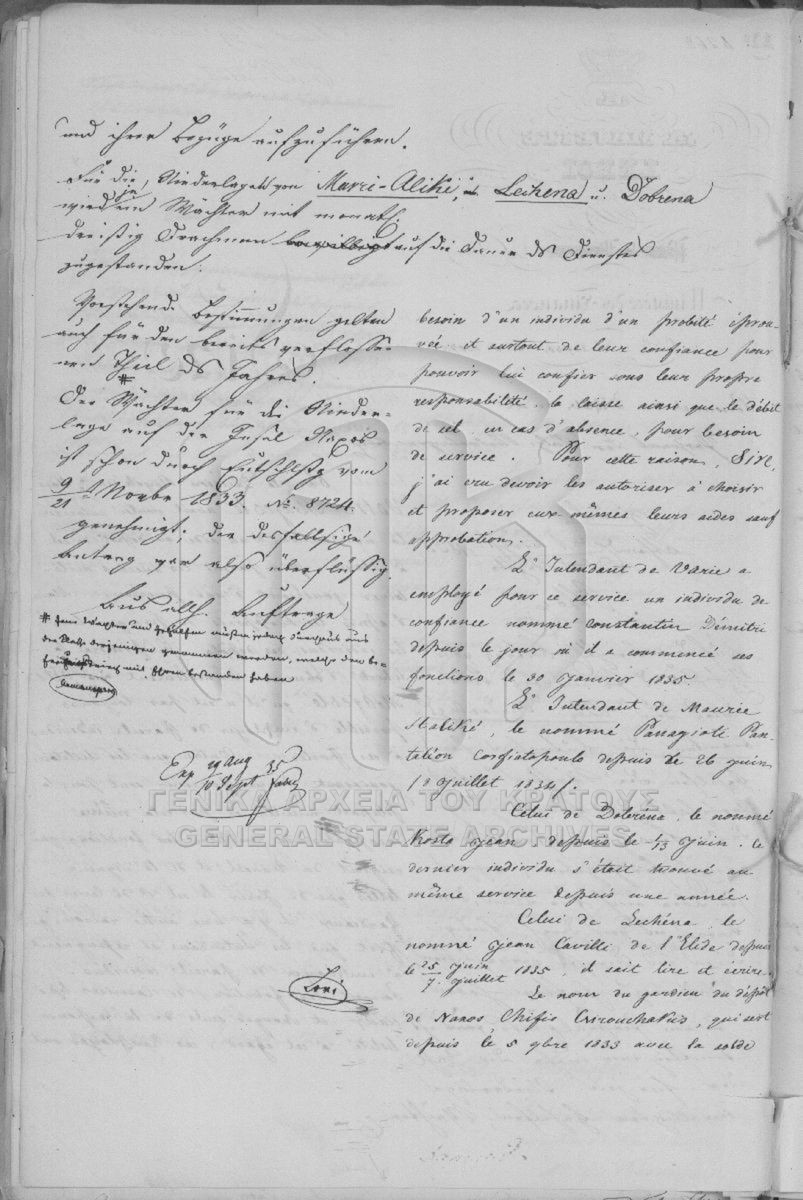 und ihrer Bezüge aufzuführen.
Für die Niederlagen von Mavri-Aliki, Lechena u. Dobrena
wird je ein Wächter mit monatl.
dreißig Drachmen bewilligt auf die Dauer des Dienstes
zugestanden.
Vorstehende Bestimmungen gelten
auch für den bereits verflosse-
nen Theil des Jahres.
*
Der Wächter für die Nieder-
lage auf der Insel Naxos
ist schon durch Entschlßg vom
9/21 Novbr 1833. No. 8724.
genehmigt; der desfallsige
Antrag war also überflüssig.
Aus allh. Auftrage
* Jene Waechter und Gehülfen müßen jedoch durchaus aus
der Klasse derjenigen genommen werden, welche den be-
freiungskrieg mit Ehren bestanden haben
Exp 19 Aug 35
/10 Sept
besoin d'un individu d'un probité éprou-
vée et surtout de leur confiance pour
pouvoir lui confier sous leur propre
responsabilité, la laisse ainsi que le débit
de sel, en cas d'absence, pour besoin
de service. Pour cette raison, Sire,
j'ai cru devoir les autoriser à choisir
et proposer eux mêmes leurs aides sauf
approbation.
L'Intendant de Varie a
employé pour ce service un individu de
confiance nommé Constantin Démitri
depuis le jour où il a commencé ses
fonctions, le 30 Janvier 1835.
L'Intendant de Maurie
Staliké, le nommé Panagioti Pan-
taléon Corfiatopoulo depuis le 26 juin
/8 Juillet 1834/.
Celui de Dobréna, le nommé
Kosto Jean depuis le 1/13 Juin. le
dernier individu s'était trouvé au
même service depuis une année.
Celui de Lechéna, le
nommé Jean Cavilli de l'Elide depuis
le 25 juin/7 Juillet 1835, il sait lire et écrire.
Le nom du gardien du dépôt
de Naxos Chifis, qui sert
depuis le 5 9bre 1833 avec la solde
ΓΕΝΙΚΑ ΑΡΧΕΙΑ ΤΟΥ ΚΡΑΤΟΥΣ
GENERAL STATE ARCHIVES